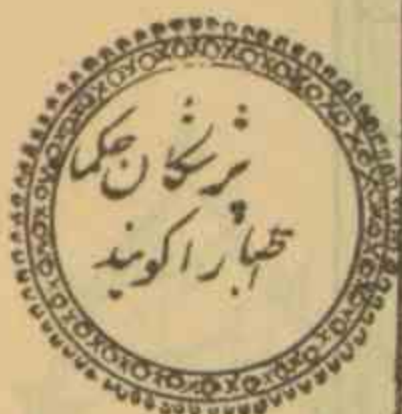 پزشکان حکما
اطبا را کویند